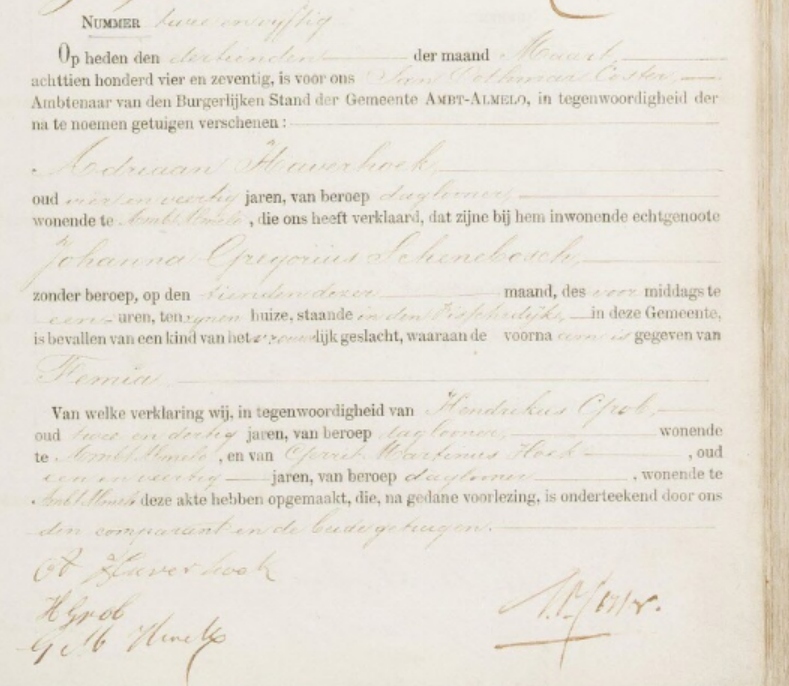 NUMMER twee en vyftig
Op heden den dertienden der maand Maart
achttien honderd vier en zeventig, is voor ons Jan Coster,
Ambtenaar van den Burgerlijken Stand der Gemeente AMBT-ALMELO, in tegenwoordigheid der
na te noemen getuigen verschenen:
Adriaan Haverhoek,
oud vier en veertig jaren, van beroep daglooner,
wonende te Ambt Almelo, die ons heeft verklaard, dat zijne bij hem inwonende echtgenoote
Johanna Gregorius Schenebosch,
zonder beroep, op den tienden dezer maand, des voor middags te
een uren, ten zynen huize, staande in den in deze Gemeente,
is bevallen van een kind van het vrouwlijk geslacht, waaraan de voorna am is gegeven van
Femia
Van welke verklaring wij, in tegenwoordigheid van Hendrikus Grob,
oud twee en dertig jaren, van beroep daglooner, wonende
te Ambt Almelo, en van Gerrit Martinus Hoek, oud
een en veertig jaren, van beroep daglooner, wonende te
Ambt Almelo deze akte hebben opgemaakt, die, na gedane voorlezing, is onderteekend door ons
den comparant en de beide getuigen.
A Haverhoek
H Grob
G M